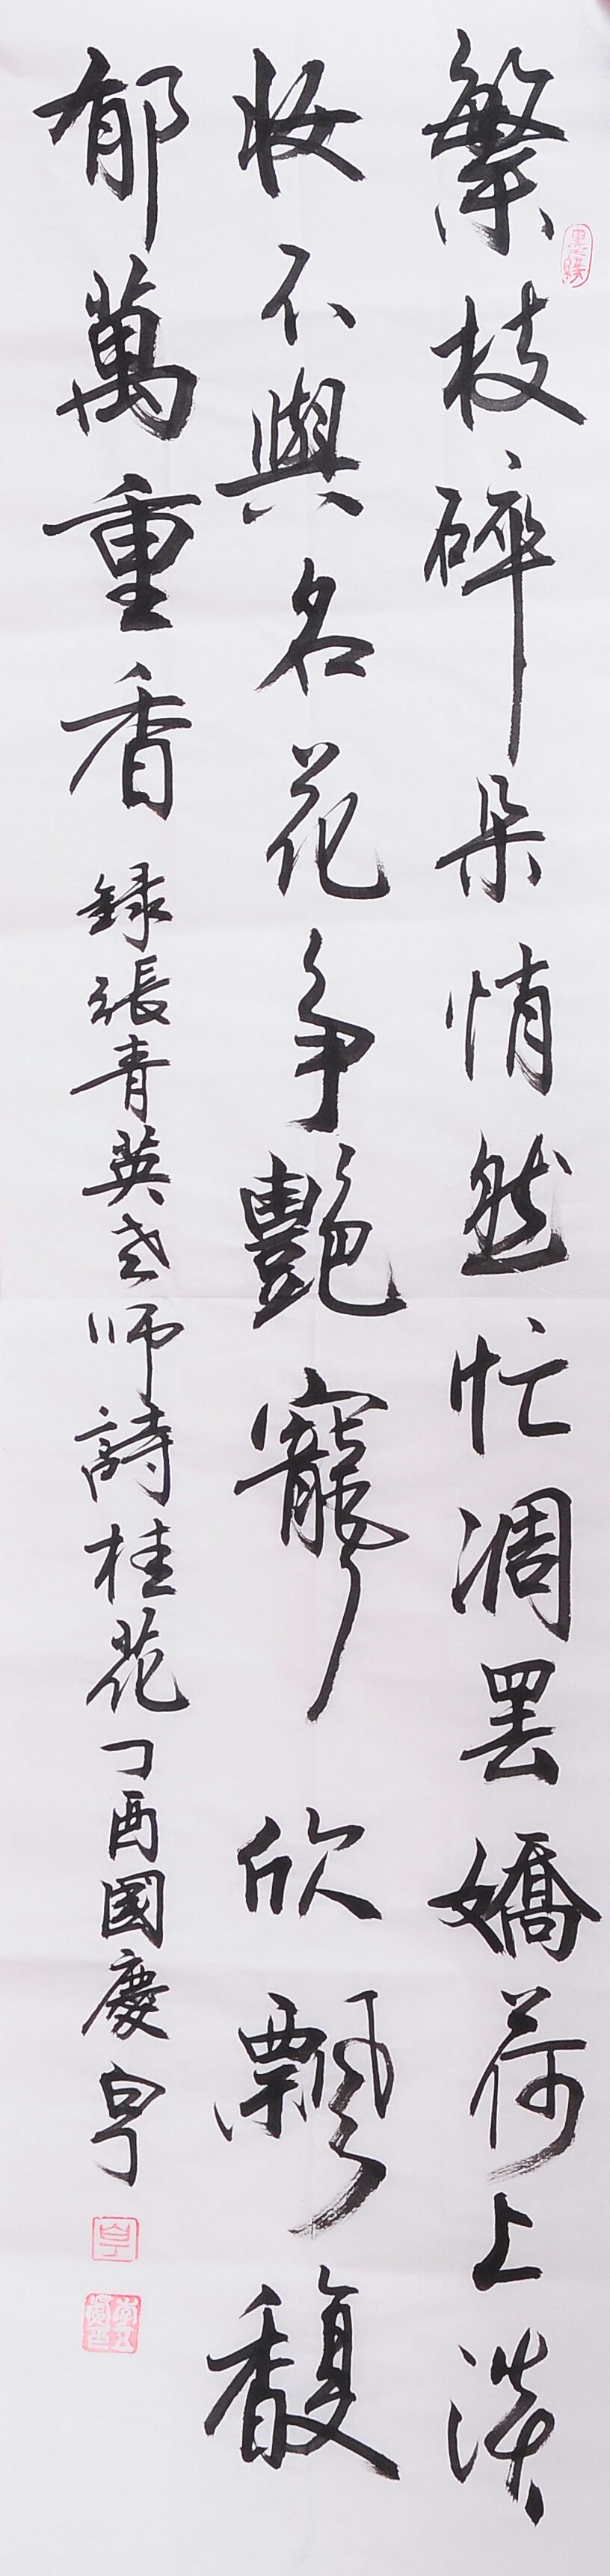 繁枝碎朵悄然忙凋罢嬌荷上淡
妝不與名花争艷寵欣飄馥
郁萬重香
録張青英老师詩桂花丁酉國慶
墨缘